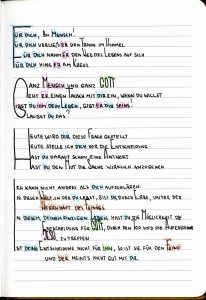 Für dich, du Mensch!
Für dich verließ er den Thron im Himmel
Für dich nahm er den Weg des Lebens auf sich
Für dich hing er am Kreuz
Ganz Mensch und ganz Gott
Geht er einen Tausch mit dir ein, wenn du willst
Gibst du ihm dein Leben, gibt er dir seins!
Glaubst du das?
Heute wird dir diese Frage gestellt
Heute stelle ich dich vor die Entscheidung
Hast du darauf schon eine Antwort
Hast du den Mut die Sache wirklich anzugehen
Ich kann nicht anders als dich aufzuklären
In dieser Welt in der du lebst, bist du durch Erbe, unter der
Herrschaft des Feindes
In deinem, deinem einzigen Leben, hast du die Möglichkeit die
Entscheidung für Gott, durch den Tod und die Auferstehung
Jesu, zu treffen
Ist deine Entscheidung nicht für ihn, so ist sie für den Feind
und der meint's nicht gut mit dir.